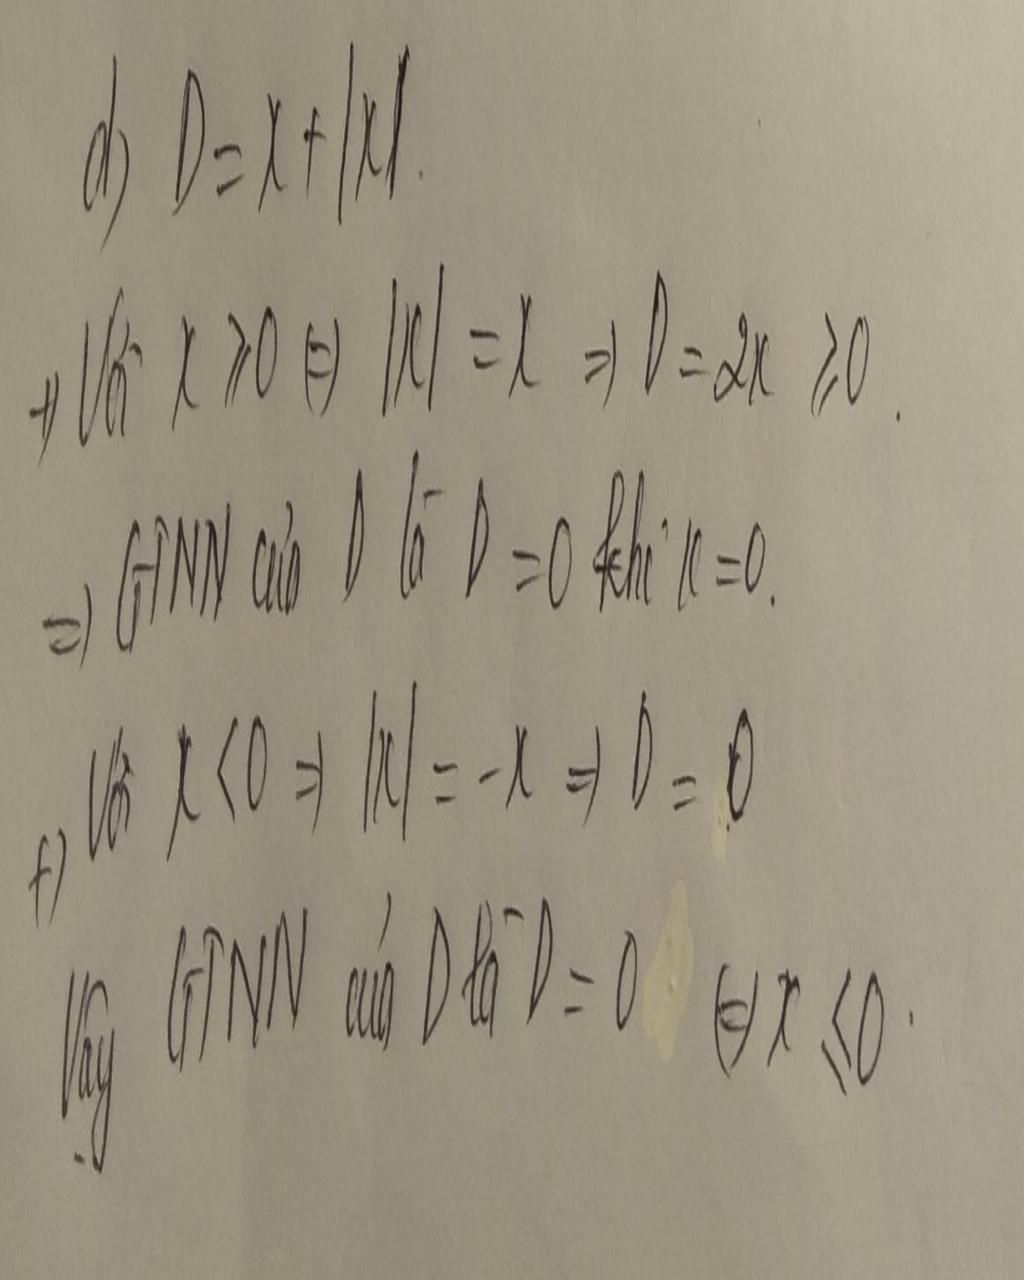 d) D = x + |x|.
+) Với x ≥ 0 ⇔ |x| = x ⇒ D = 2x ≥ 0.
⇒) GTNN của D là D = 0 khi x = 0.
+) Với x < 0 ⇒ |x| = -x ⇒ D = 0
Vậy GTNN của D là D = 0 ⇔ x ≤ 0.